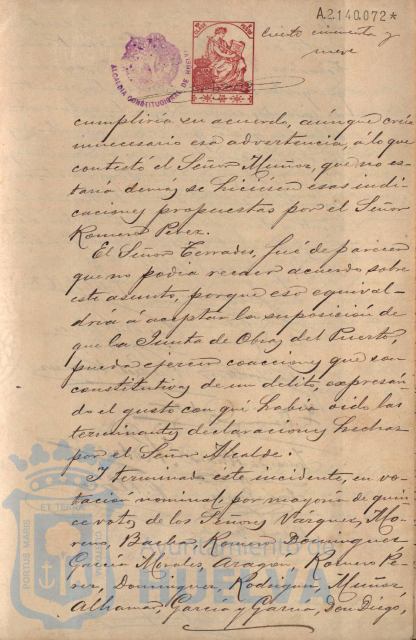 A.2.140.072*
ciento cincuenta y
nueve
ALCALDIA CONSTITUCIONAL DE HUELVA
cumpliría su acuerdo, aunque creía
innecesario esa advertencia, á lo que
contestó el Señor Muñoz, que no es-
taría demas se hiciesen esas indi-
caciones propuestas por el Señor
Romero Perez.
El Señor Terrades, fué de parecer
que no podia recaer acuerdo sobre
este asunto, porque eso equival-
dría á aceptar la suposicion de
que la Junta de Obras del Puerto,
pueda ejercer coacciones que son
constitutivas de un delito, expresan-
do el gusto con qué habia oido las
terminantes declaraciones hechas
por el Señor Alcalde.
Y terminado este incidente, en vo-
tacion nominal, por mayoria de quin-
ce votos de los Señores Vázquez, Mo-
reno, Barba, Romero Dominguez,
García Morales, Aragon, Romero Pe-
rez, Dominguez, Rodriguez, Muñoz
Alhama, García y García, Don Diego,
PORTUS MARIS
ET TERRAE
Ayuntamiento de
HUELVA